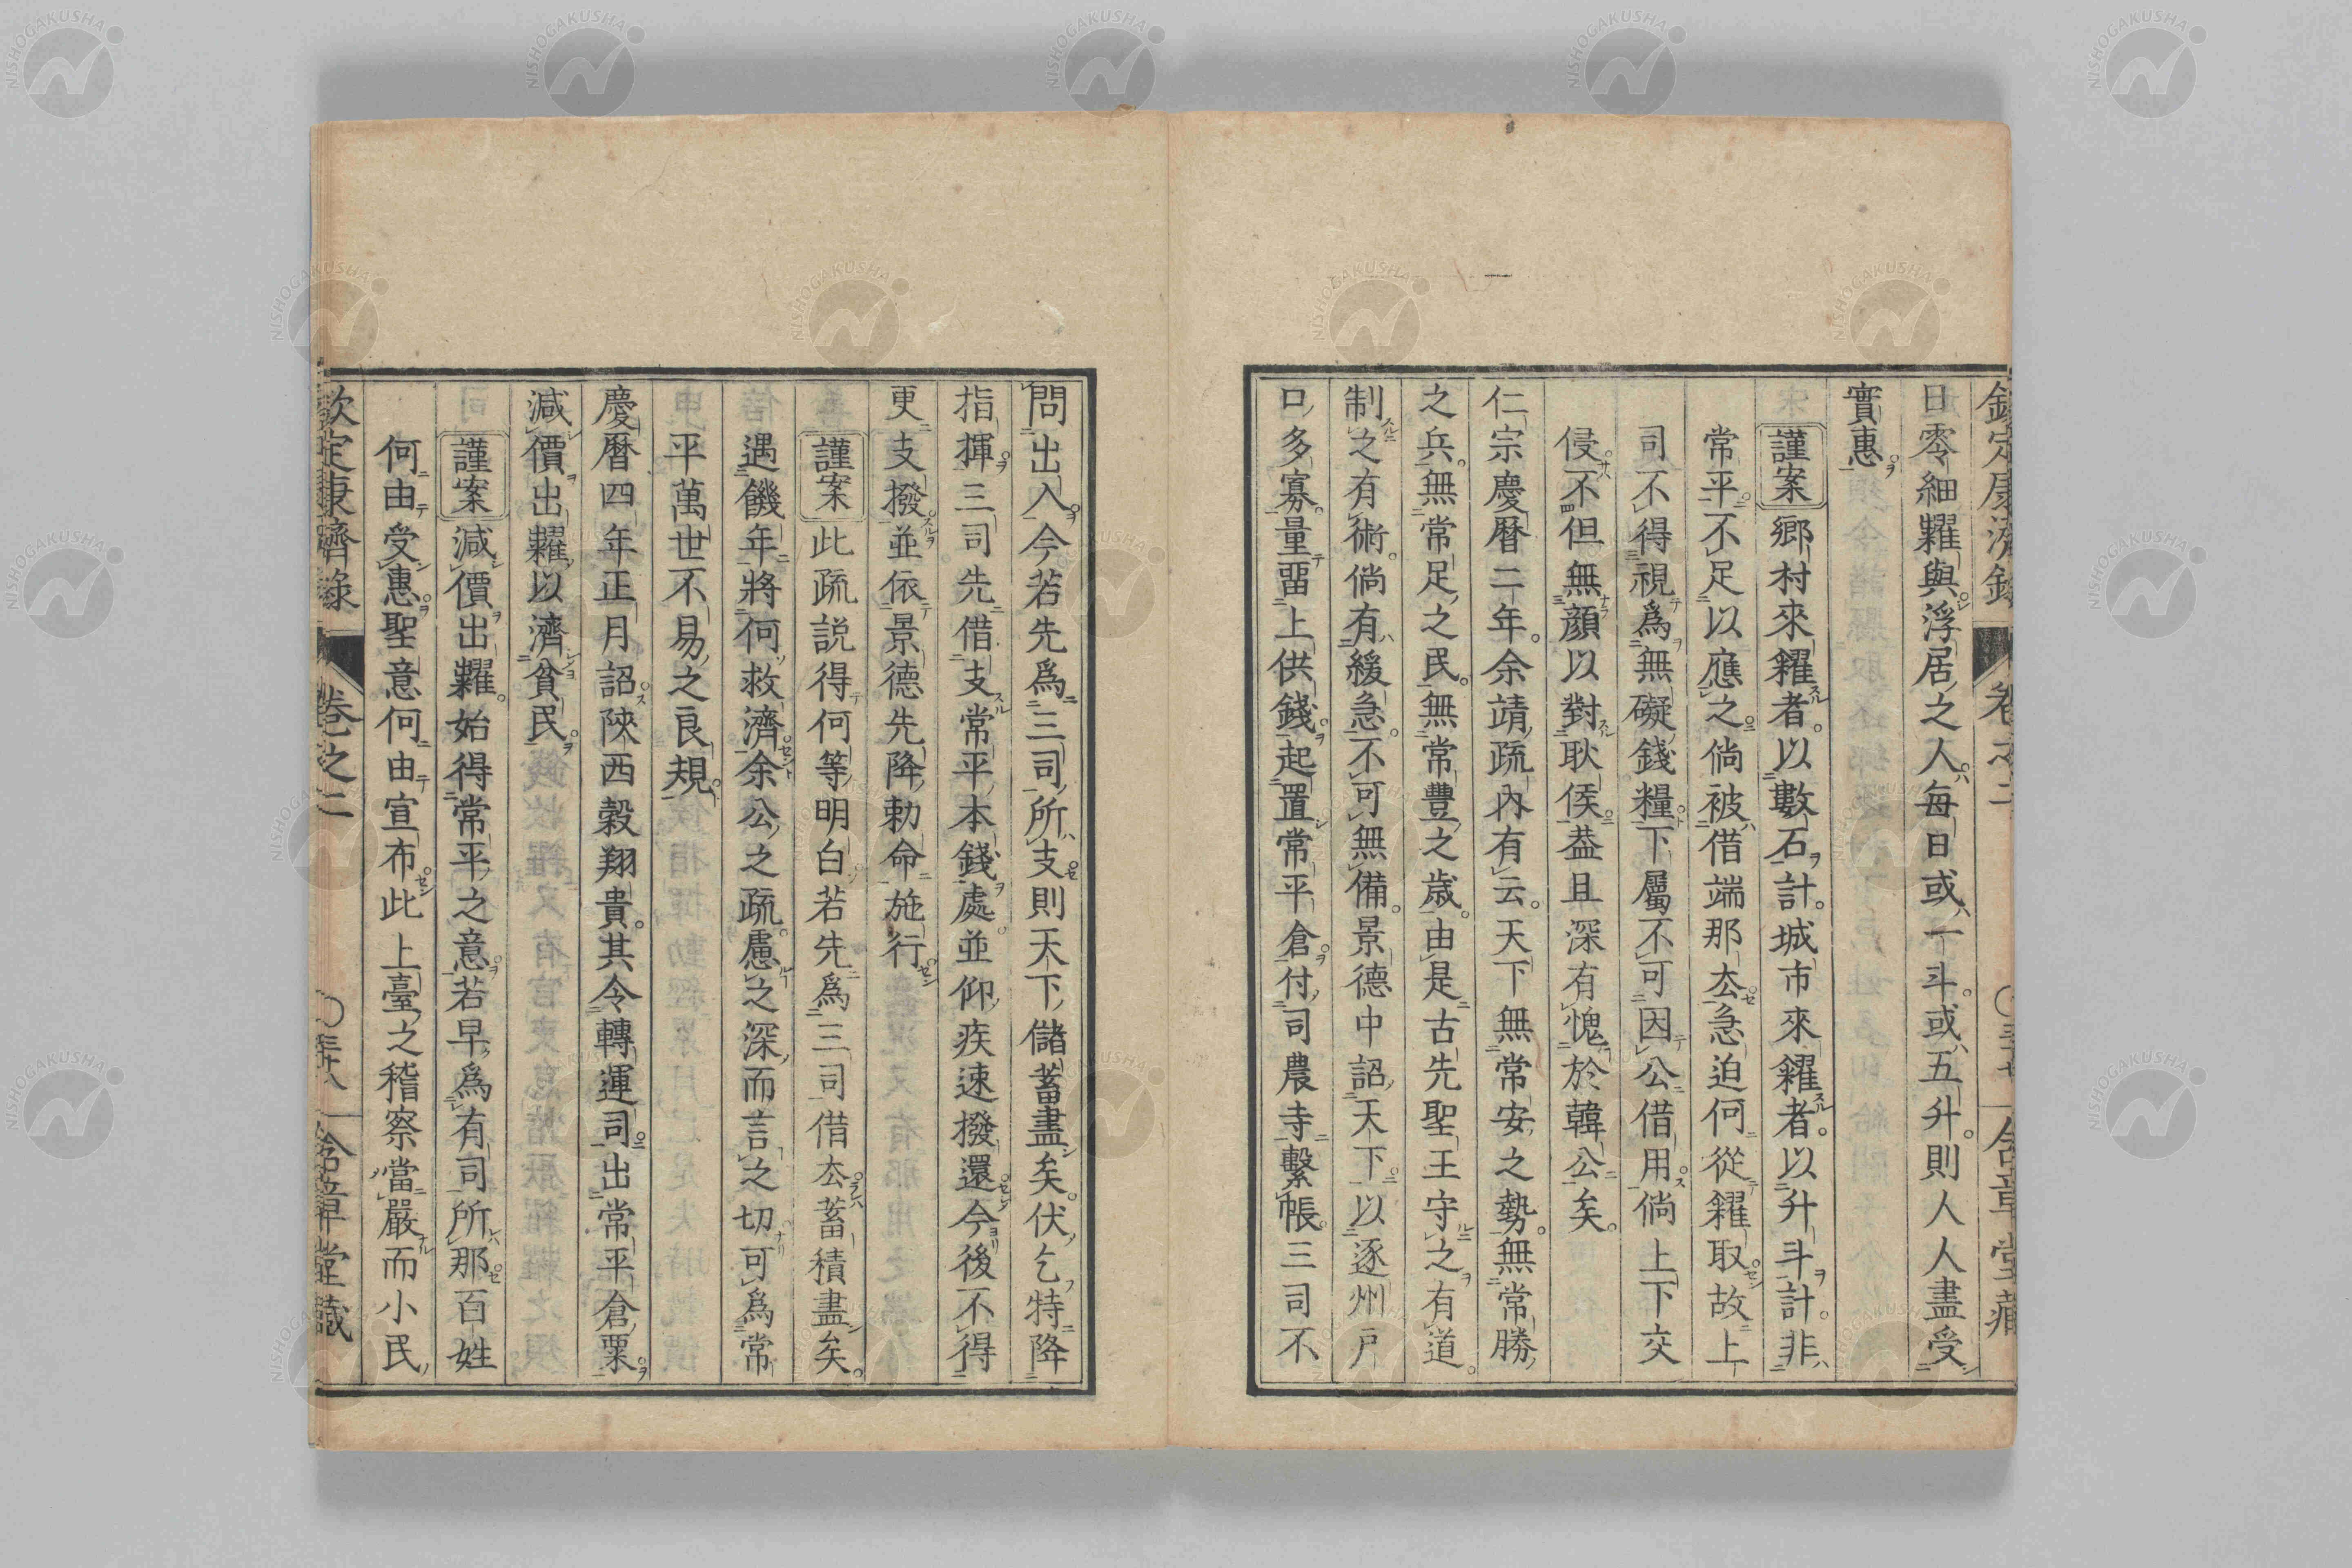 日零細糶與浮居之人每日或一斗或五升則人人盡受
實惠
謹案鄉村來糴者以數石計城市來糴者以升斗計非
常平不足以應之倘被借端那去急迫何從糴取故上
司不得視爲無礙錢糧下屬不可因公借用倘上下交
侵不但無顏以對耿侯葢且深有愧於韓公矣
仁宗慶曆二年余靖疏內有云天下無常安之勢無常勝
之兵無常足之民無常豐之歲由是古先聖王守之有道
制之有術倘有緩急不可無備景德中詔天下以逐州戶
口多寡量畱上供錢起置常平倉付司農寺繫帳三司不
問出入今若先爲三司所支則天下儲蓄盡矣伏乞特降
指揮三司先借支常平本錢處並仰疾速撥還今後不得
更支撥並依景德先降勅命施行
謹案此疏說得何等明白若先爲三司借去蓄積盡矣
遇饑年將何救濟余公之疏慮之深而言之切可爲常
平萬世不易之良規
慶曆四年正月詔陝西穀翔貴其令轉運司出常平倉粟
減價出糶以濟貧民
謹案減價出糶始得常平之意若早爲有司所那百姓
何由受惠聖意何由宣布此上臺之稽察當嚴而小民
欽定康濟錄 卷之二 含章堂藏
NISHOGAKUSHA